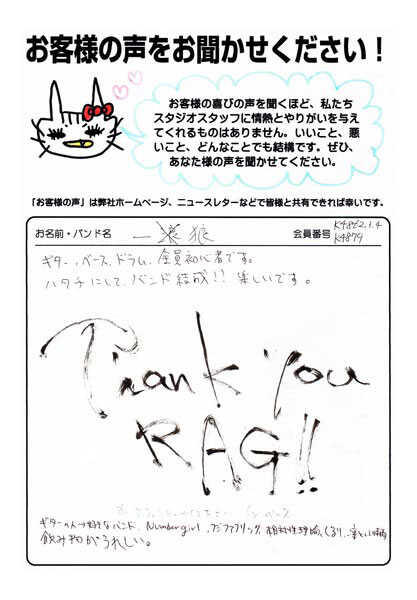 お客様の声をお聞かせください！
お客様の喜びの声を聞くほど、私たち
スタジオスタッフに情熱とやりがいを与え
てくれるものはありません。いいこと、悪
いこと、どんなことでも結構です。ぜひ、
あなた様の声を聞かせてください。
「お客様の声」は弊社ホームページ、ニュースレターなどで皆様と共有できれば幸いです。
お名前・バンド名 一 狼 会員番号 K4862.1.4
K4879
ギター、ベース、ドラム、全員初心者です。
ハタチにして、バンド結成!! 楽しいです。
Thank you
RAG!!
ギターの人の好きなバンド、Number girl、アジアンカンフー、相対性理論、くるり
飲み物がうれしい。